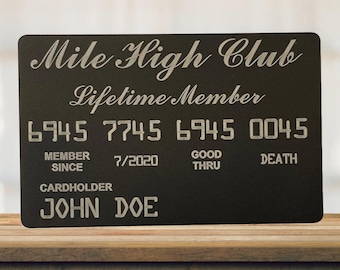 Mile High Club
Lifetime Member
6945 7745 6945 0045
MEMBER SINCE 7/2020 GOOD THRU DEATH
CARDHOLDER
JOHN DOE